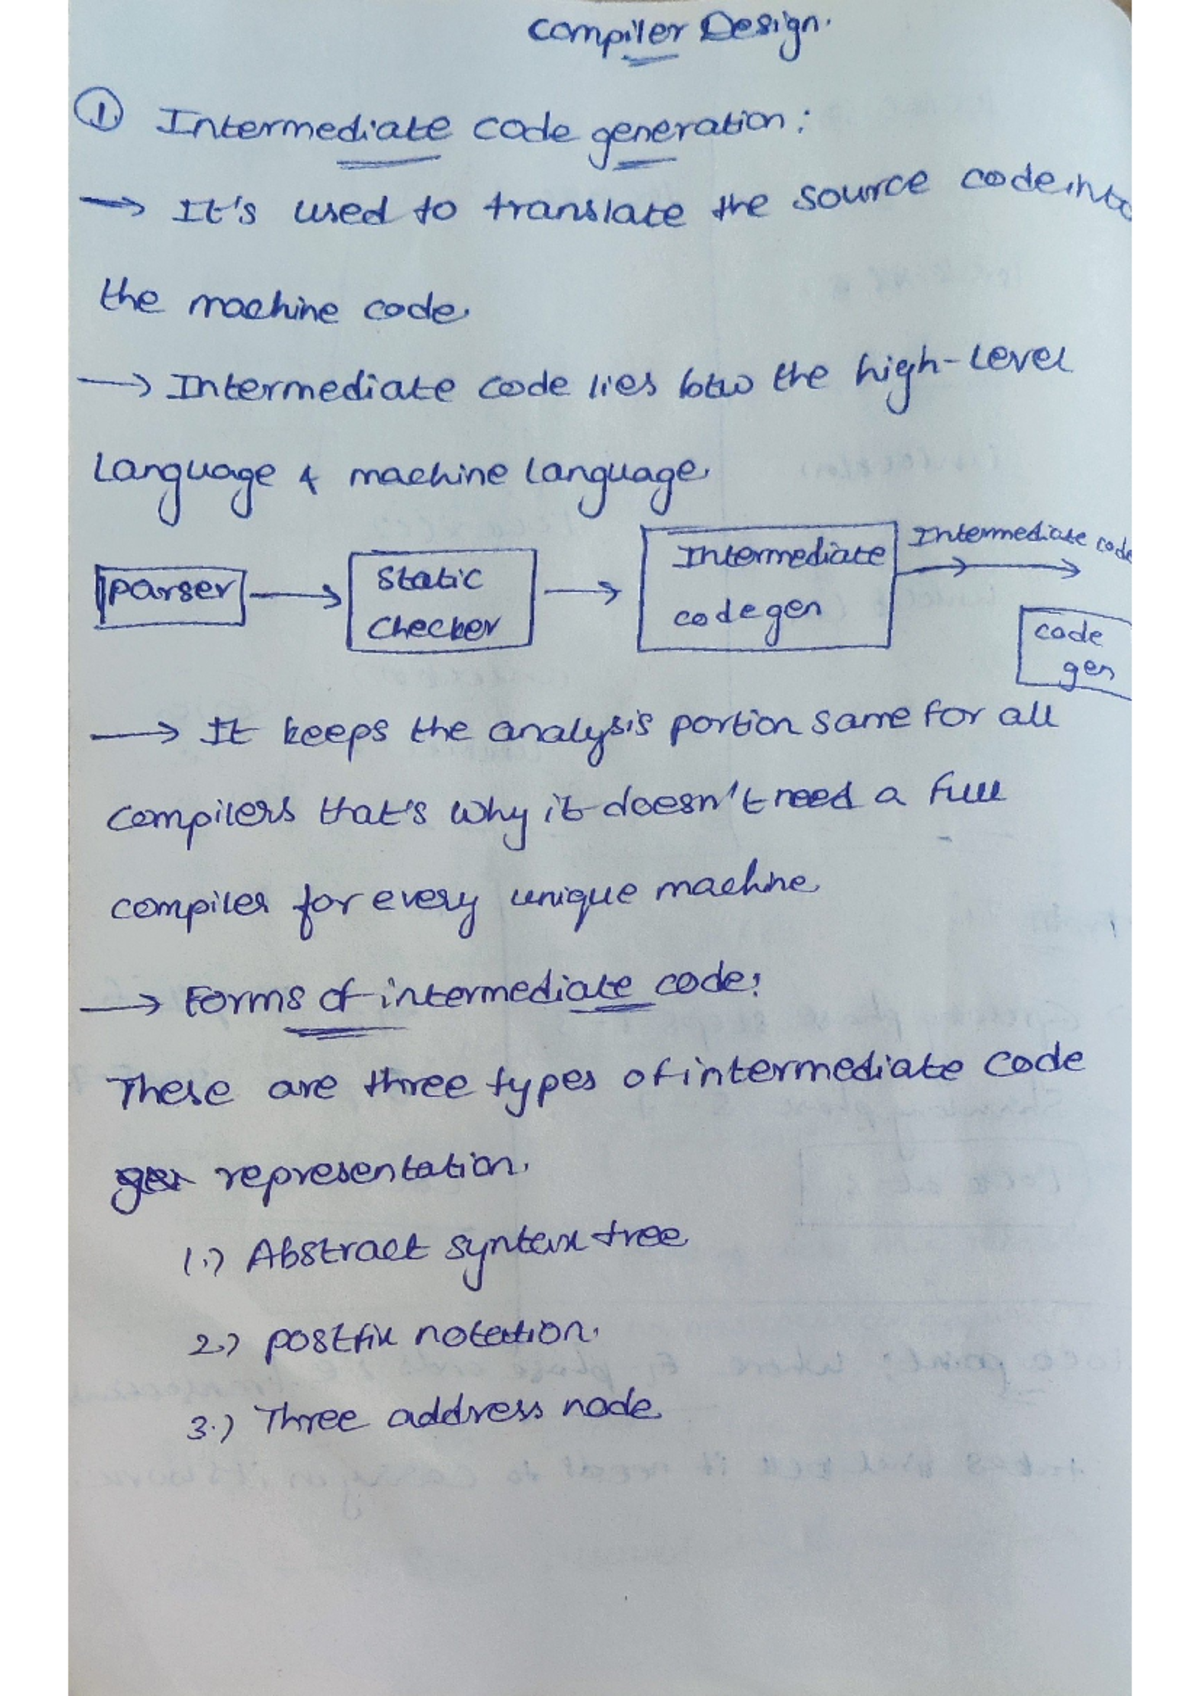 Compiler Design.
① Intermediate code generation:
→ It's used to translate the source code into
the machine code.
→ Intermediate code lies btw the high-Level
Language & machine language.
Parser → Static Checker → Intermediate code gen → Intermediate code
code
gen
→ It keeps the analysis portion same for all
compilers that's why it doesn't need a full
compiler for every unique machine.
→ Forms of intermediate code:
These are three types of intermediate code
representation.
1.) Abstract syntax tree
2.) postfix notation.
3.) Three address node.